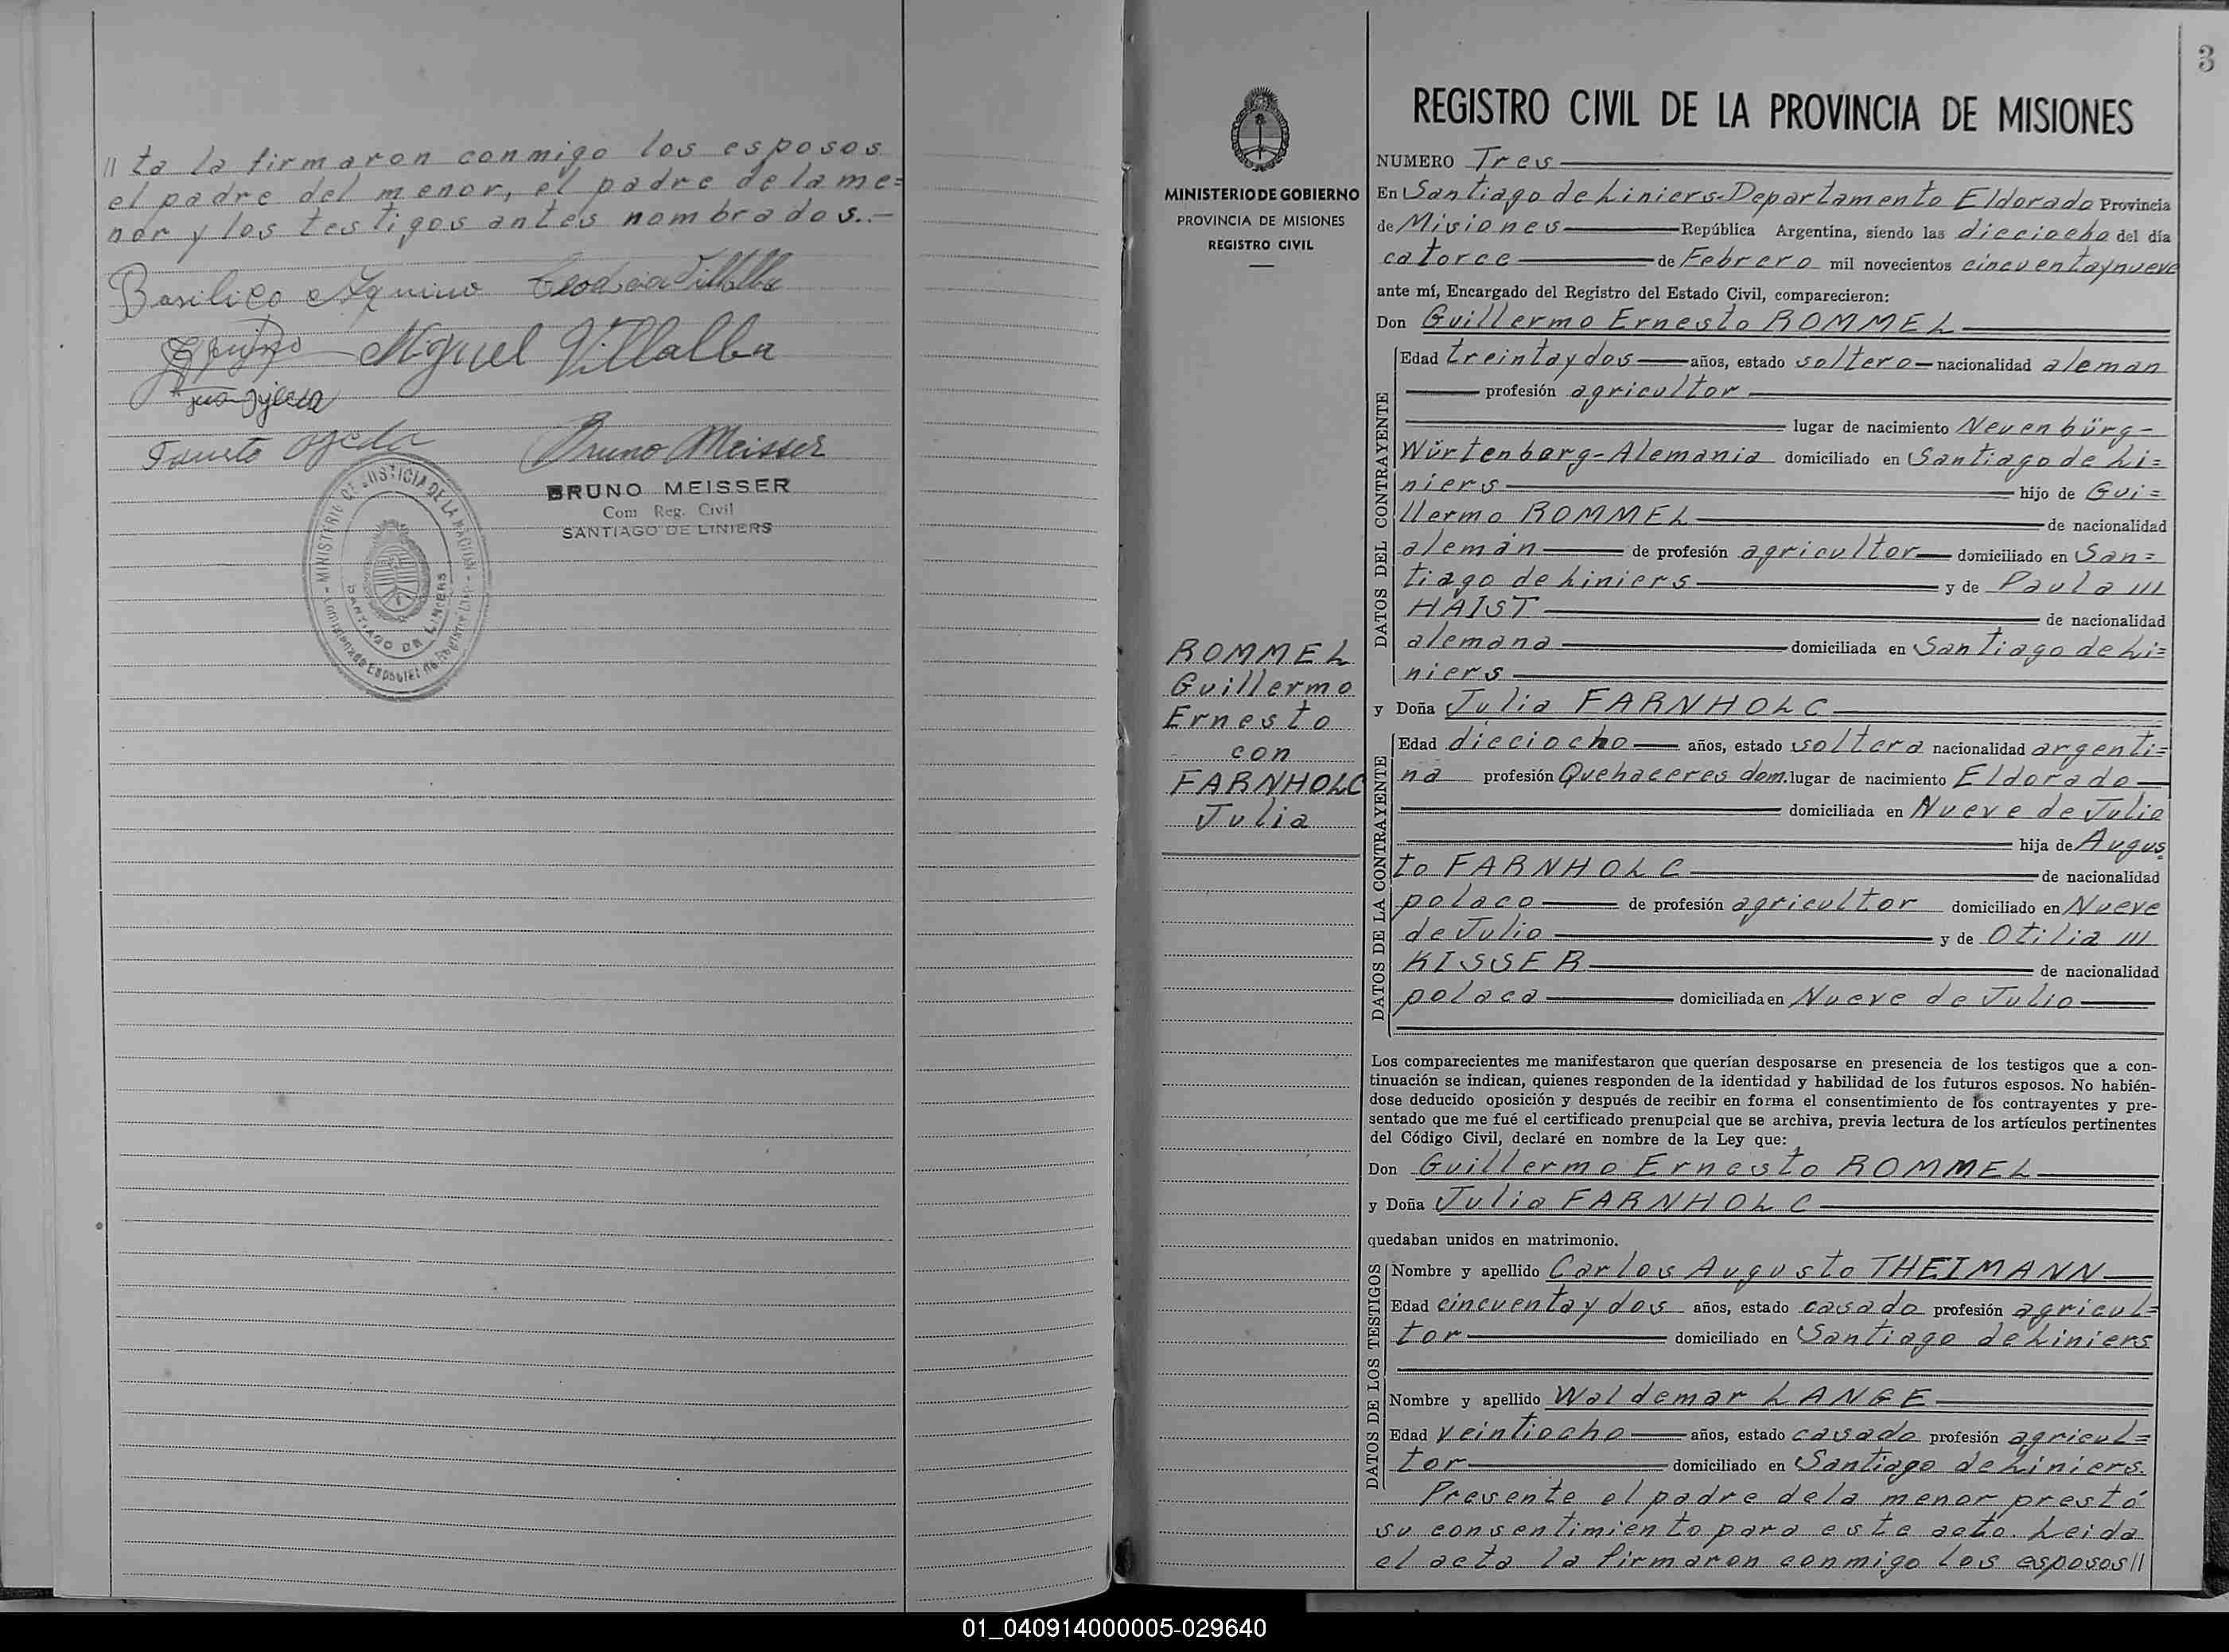 // ta la firmaron conmigo los esposos
el padre del menor, el padre de la me=
nor y los testigos antes nombrados.-
Basilico Aquino Teodocia Villalba
Miguel Villalba
Fausto Ojeda Bruno Meisser
BRUNO MEISSER
Com Reg. Civil
SANTIAGO DE LINIERS
MINISTERIO DE JUSTICIA DE LA NACION
SANTIAGO DE LINIERS
3
MINISTERIO DE GOBIERNO
PROVINCIA DE MISIONES
REGISTRO CIVIL
ROMMEL
Guillermo
Ernesto
con
FARNHOLC
Julia
REGISTRO CIVIL DE LA PROVINCIA DE MISIONES
NUMERO Tres
En Santiago de Liniers-Departamento Eldorado Provincia
de Misiones República Argentina, siendo las dieciocho del día
catorce de Febrero mil novecientos cincuentaynueve
ante mí, Encargado del Registro del Estado Civil, comparecieron:
Don Guillermo Ernesto ROMMEL
DATOS DEL CONTRAYENTE
Edad treintaydos años, estado soltero nacionalidad aleman
profesión agricultor
lugar de nacimiento Neuenbürg-
Würtenberg-Alemania domiciliado en Santiago de Li=
niers hijo de Gui=
llermo ROMMEL de nacionalidad
alemán de profesión agricultor domiciliado en San=
tiago de Liniers y de Paula ///
HAIST de nacionalidad
alemana domiciliada en Santiago de Li=
niers
y Doña Julia FARNHOLC
DATOS DE LA CONTRAYENTE
Edad dieciocho años, estado soltera nacionalidad argenti=
na profesión Quehaceres dom. lugar de nacimiento Eldorado
domiciliada en Nueve de Julio
hija de Augus
to FARNHOLC de nacionalidad
polaco de profesión agricultor domiciliado en Nueve
de Julio y de Otilia ///
KISSER de nacionalidad
polaca domiciliada en Nueve de Julio
Los comparecientes me manifestaron que querían desposarse en presencia de los testigos que a con-
tinuación se indican, quienes responden de la identidad y habilidad de los futuros esposos. No habién-
dose deducido oposición y después de recibir en forma el consentimiento de los contrayentes y pre-
sentado que me fué el certificado prenupcial que se archiva, previa lectura de los artículos pertinentes
del Código Civil, declaré en nombre de la Ley que:
Don Guillermo Ernesto ROMMEL
y Doña Julia FARNHOLC
quedaban unidos en matrimonio.
DATOS DE LOS TESTIGOS
Nombre y apellido Carlos Augusto THEIMANN
Edad cincuenta y dos años, estado casado profesión agricul=
tor domiciliado en Santiago de Liniers
Nombre y apellido Waldemar LANGE
Edad veintiocho años, estado casado profesión agricul=
tor domiciliado en Santiago de Liniers.
Presente el padre de la menor prestó
su consentimiento para este acto. Leida
el acta la firmaron conmigo los esposos//
01_040914000005-029640